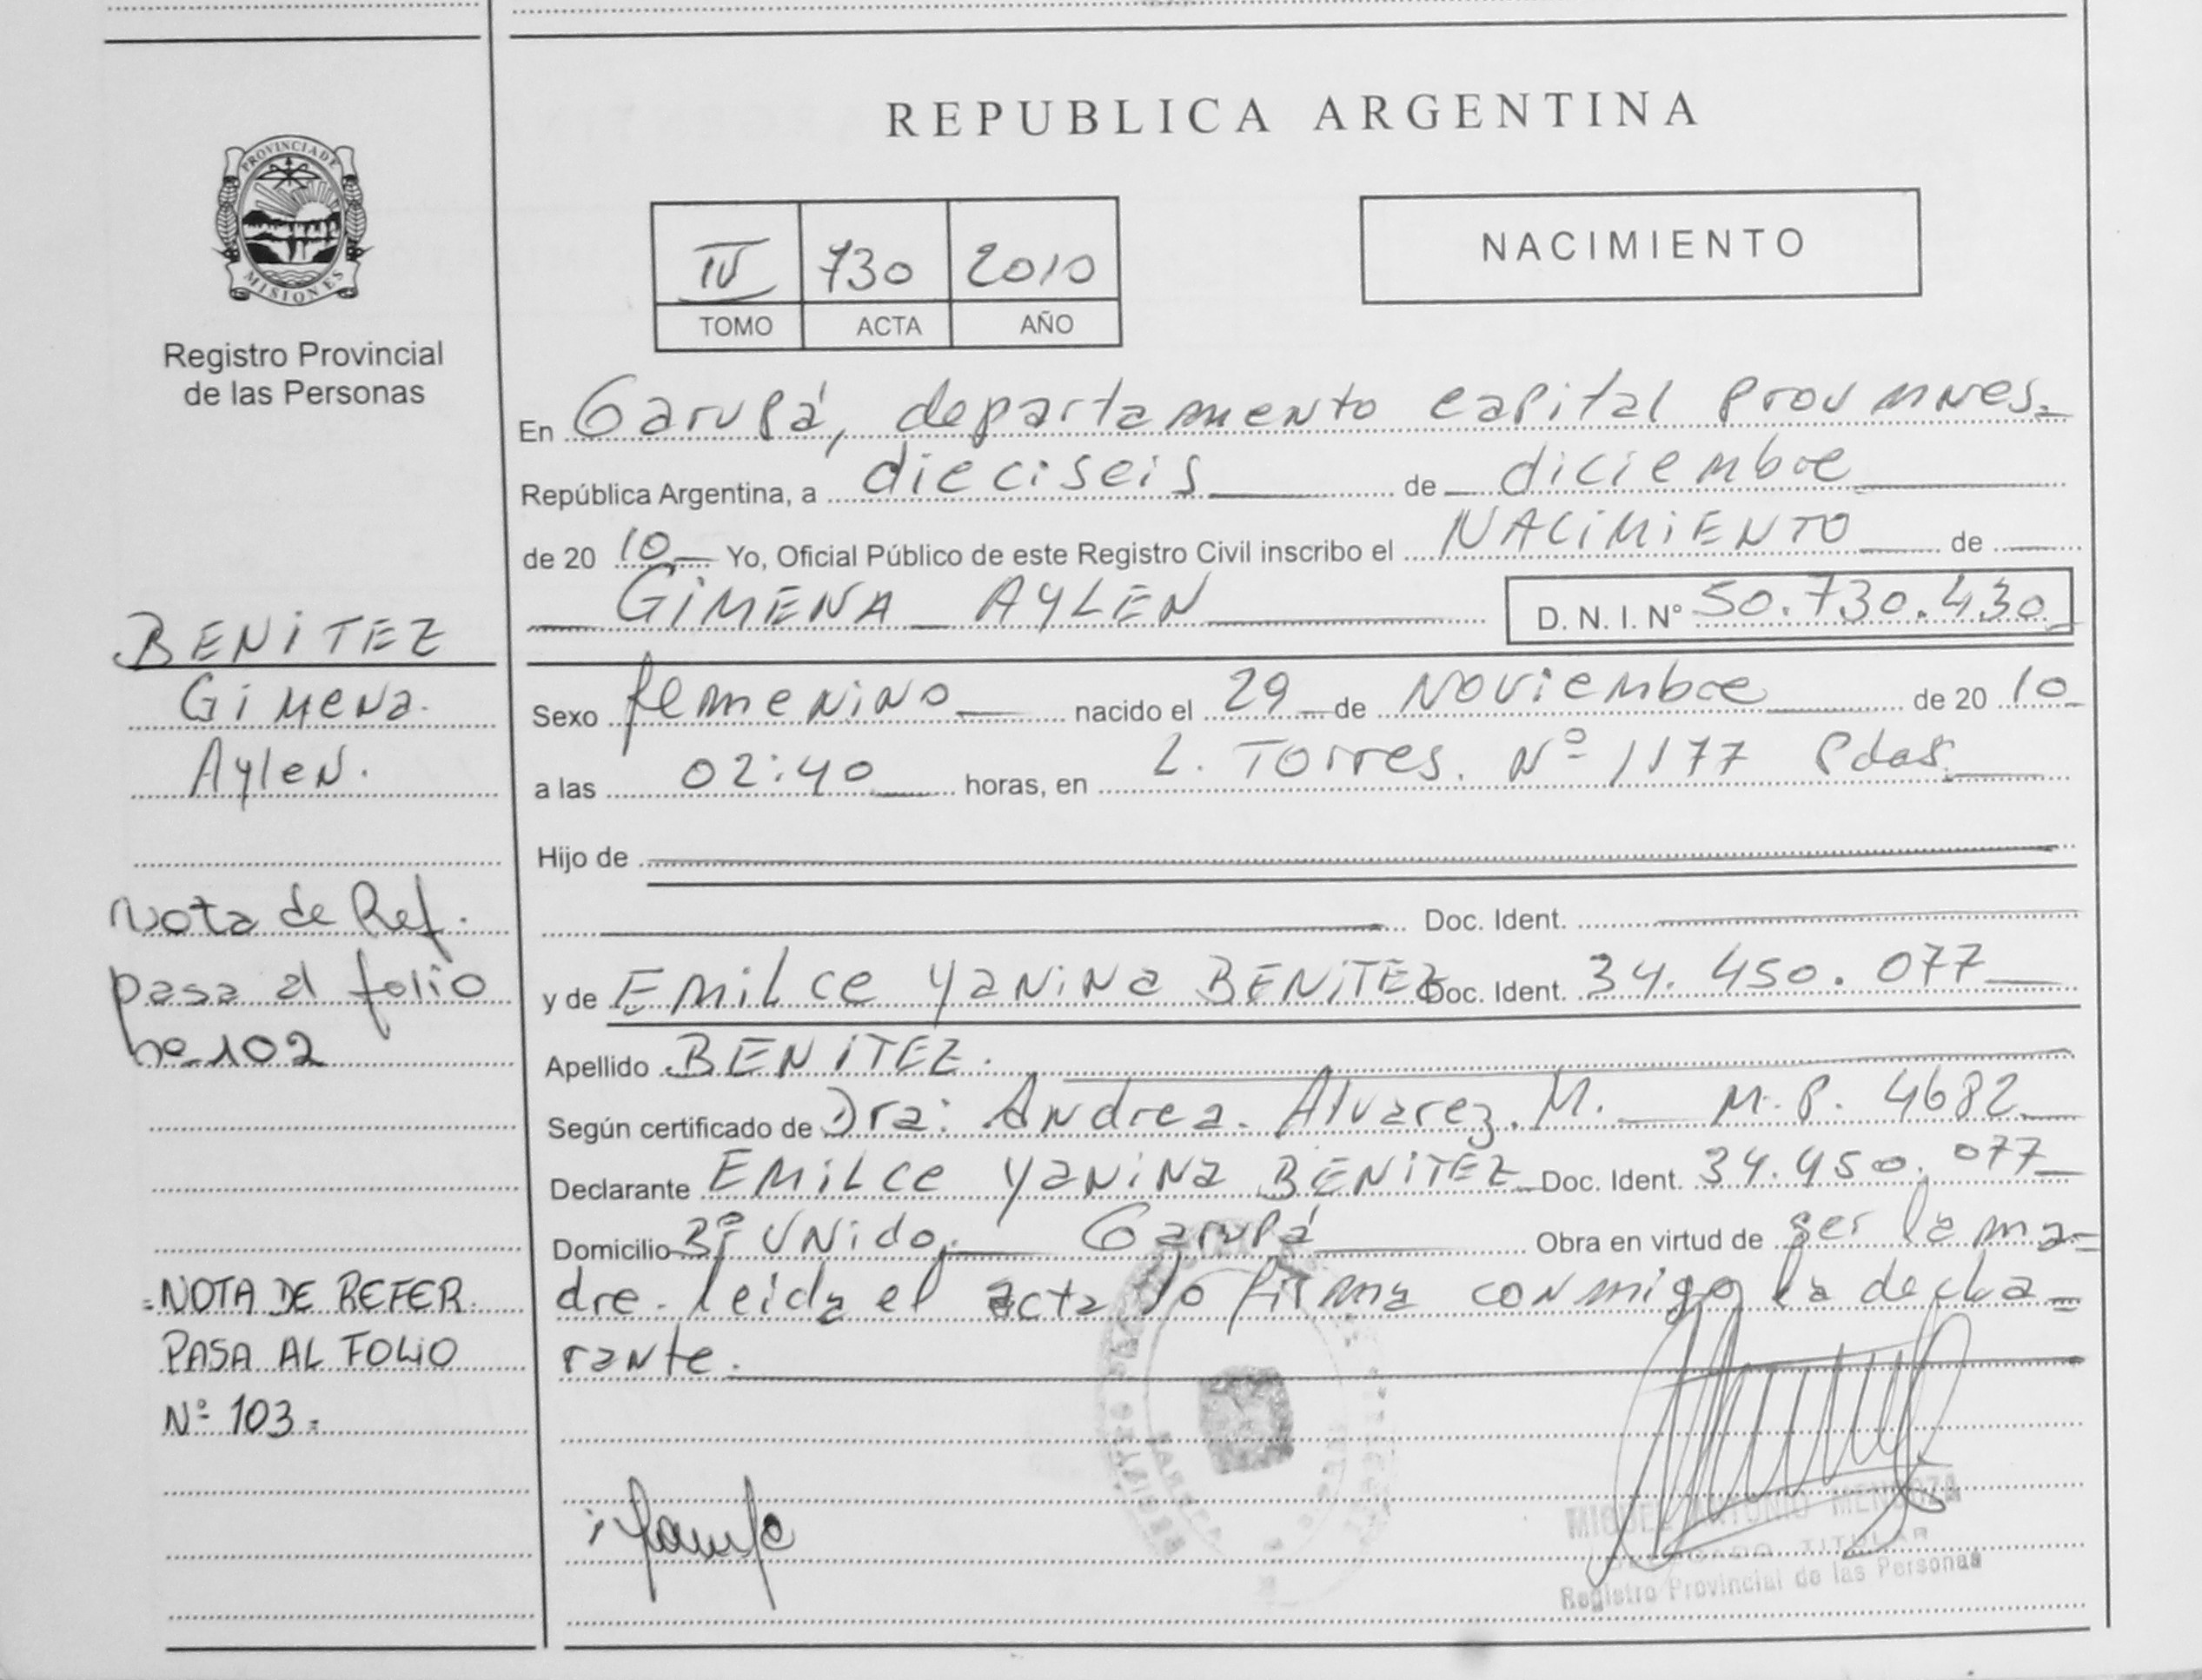 REPUBLICA ARGENTINA
PROVINCIA DE
MISIONES
Registro Provincial
de las Personas
IV 730 2010
TOMO ACTA AÑO
NACIMIENTO
En Garupá, departamento capital Prov
República Argentina, a dieciseis de diciembre
de 20 10 Yo, Oficial Público de este Registro Civil inscribo el NACIMIENTO de
GIMENA AYLEN D. N. I. Nº 50.730.430
BENITEZ
Gimena
Aylen.
Nota de Ref.
pasa al folio
nº 102
NOTA DE REFER.
PASA AL FOLIO
Nº 103
Sexo femenino nacido el 29 de Noviembre de 20 10
a las 02:40 horas, en L. Torres. Nº 1177 Pdas.
Hijo de
Doc. Ident.
y de Emilce Yanina BENITEZ Doc. Ident. 34.450.077
Apellido BENITEZ.
Según certificado de Dra: Andrea. Alvarez. M. M.P. 4682
Declarante Emilce Yanina BENITEZ Doc. Ident. 34.450.077
Domicilio Bº Unido, Garupá Obra en virtud de ser la ma=
dre. leida el acta lo firma conmigo la decla=
rante.
MIGUEL ANTONIO MENDOZA
DELEGADO TITULAR
Registro Provincial de las Personas